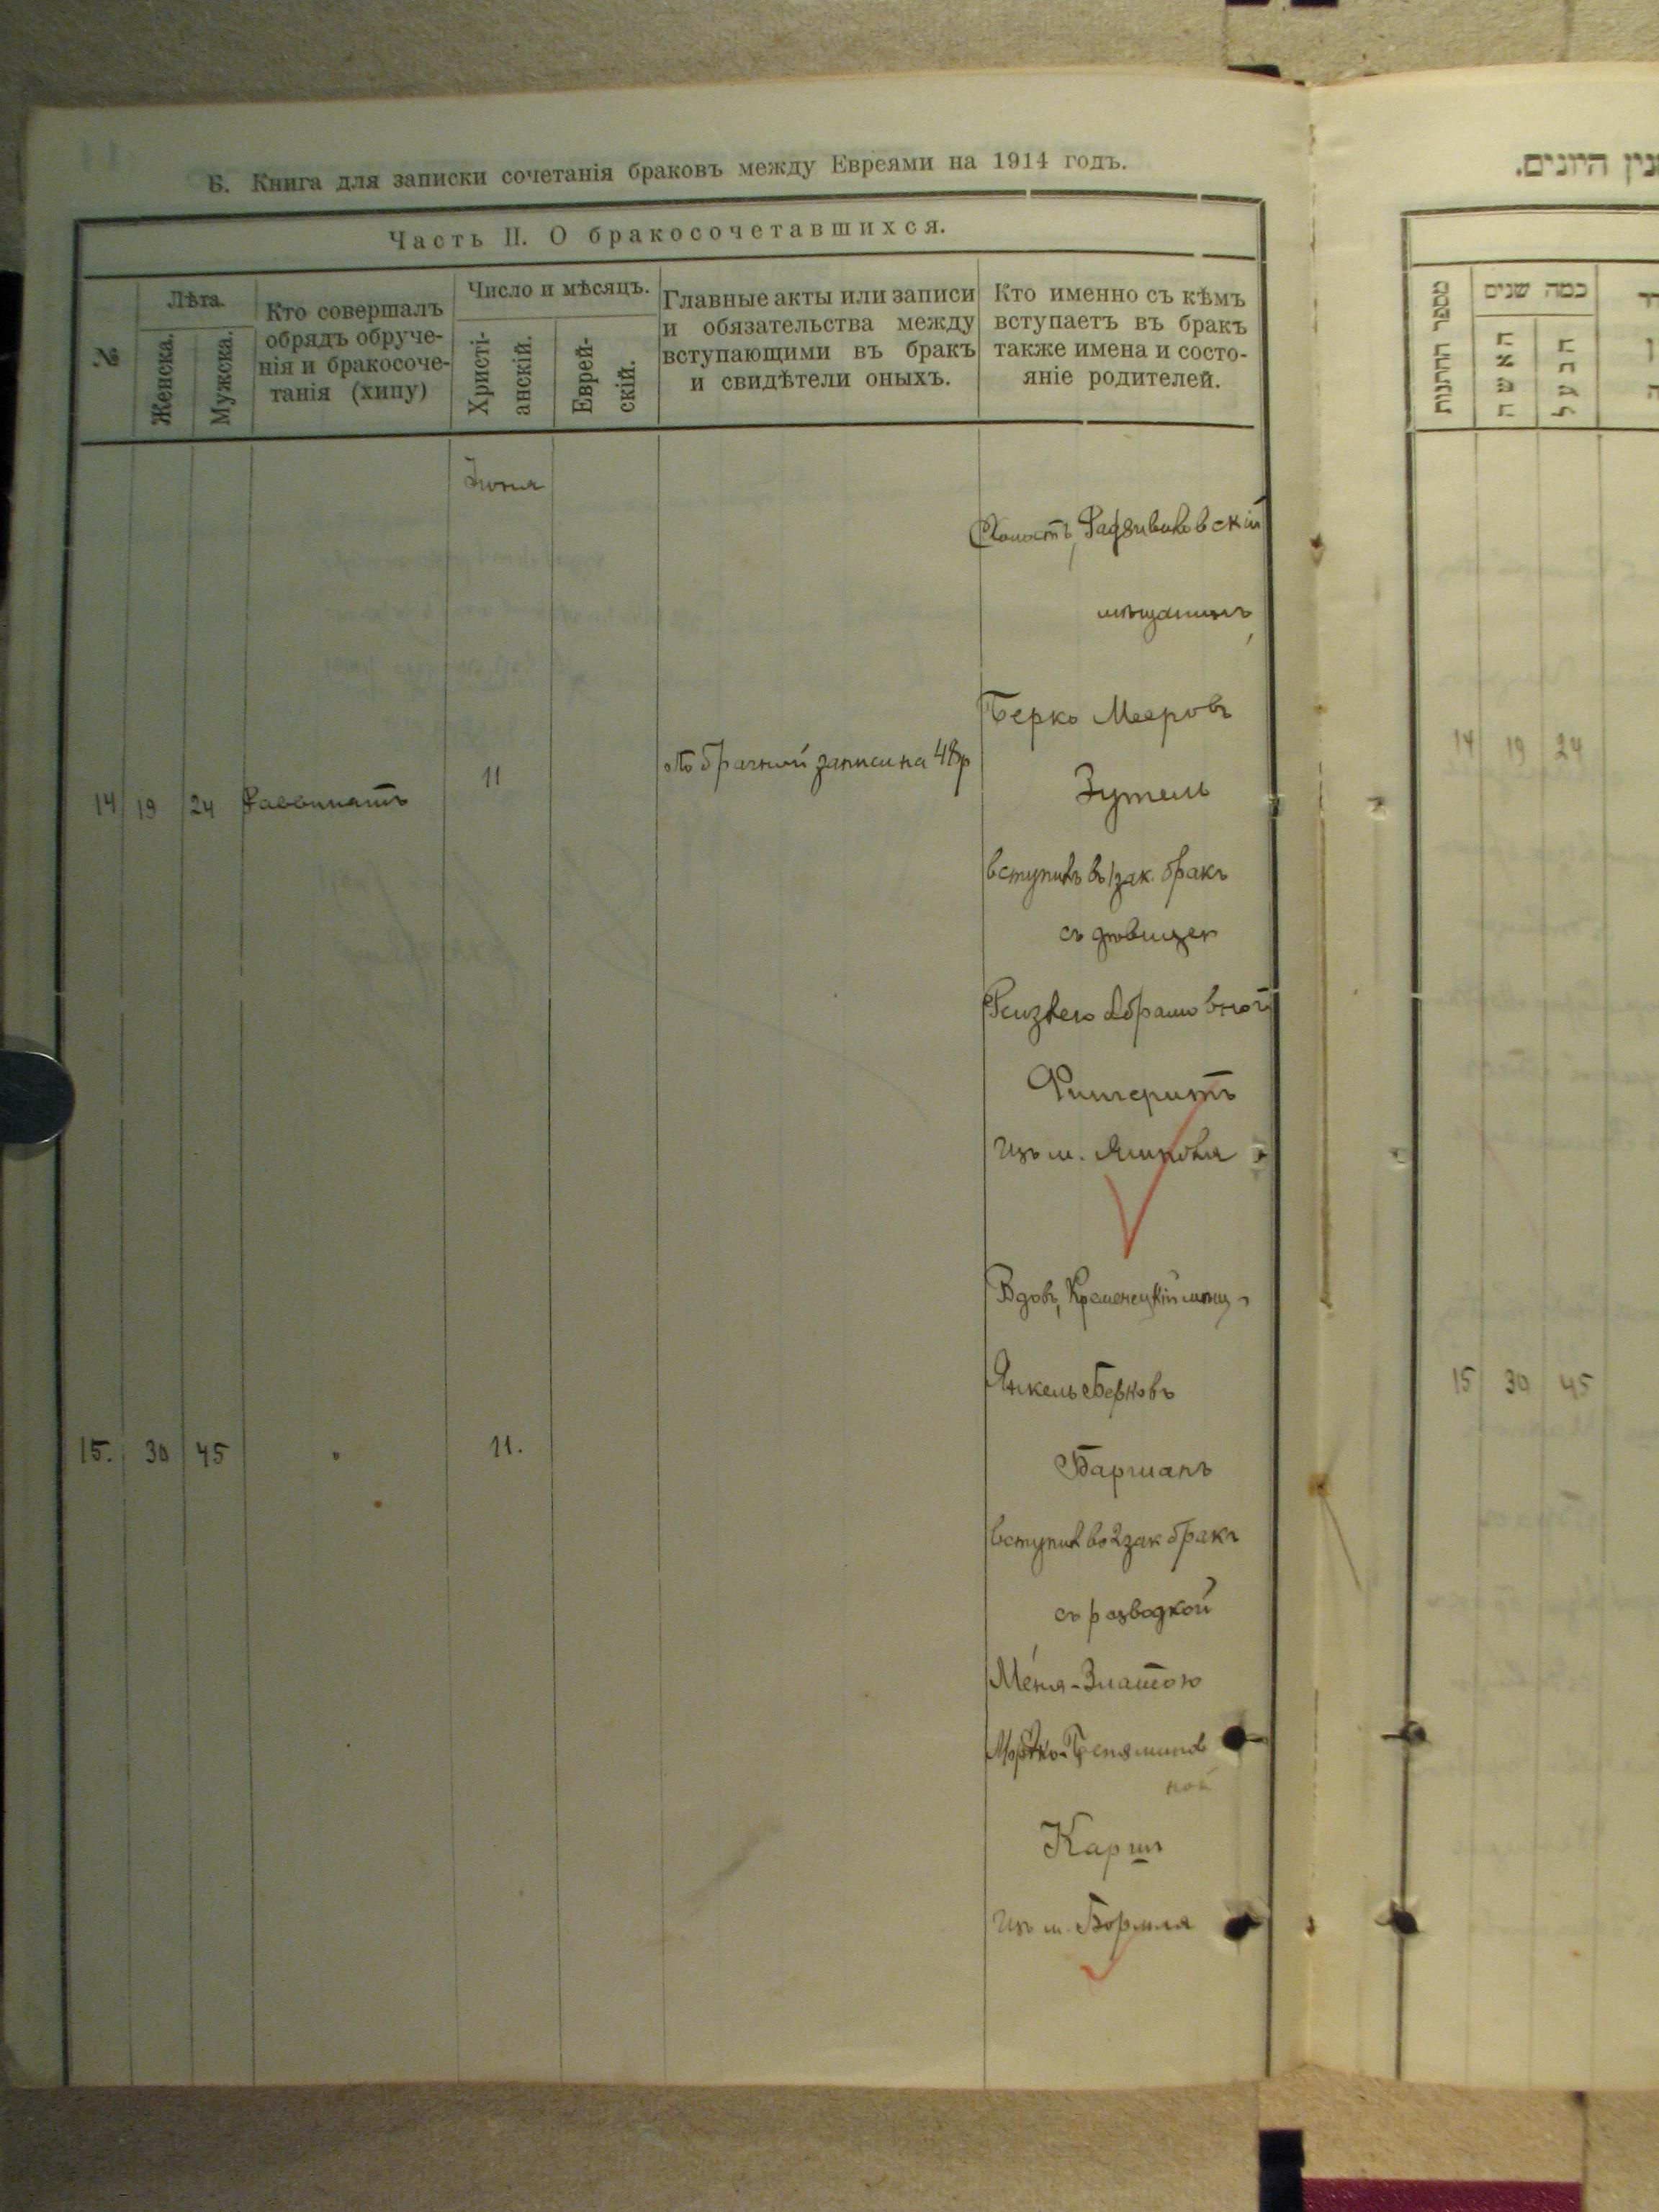 Б. Книга для записки сочетанія браковъ между Евреями на 1914 годъ.
Часть II. О бракосочетавшихся.
№
Лѣта.
Женска.
Мужска.
Кто совершалъ
обрядъ обруче-
нія и бракосоче-
танія (хипу)
Число и мѣсяцъ.
Христі-
анскій.
Еврей-
скій.
Главные акты или записи
и обязательства между
вступающими въ бракъ
и свидѣтели оныхъ.
Кто именно съ кѣмъ
вступаетъ въ бракъ
также имена и состо-
яніе родителей.
Іюня
Холостъ, Радзивиловскій
мѣщанинъ,
Берко Мееровъ
14 19 24 Раввинатъ 11 По брачной записи на 48р
Зутель
вступилъ въ 1 зак. бракъ
съ дѣвицей
Рейзлею Абрамовной
Фингерутъ
Изъ м.
Вдовъ, Кременецкій мѣщ
Янкель Берковъ
15. 30 45 " 11.
Барманъ
вступилъ во 2 зак бракъ
съ разводкой
Меня-Златою
ной
Изъ м.
נין היונים.
מספר החתנות
כמה שנים
האשה
הבעל
14 19 24
15 30 45